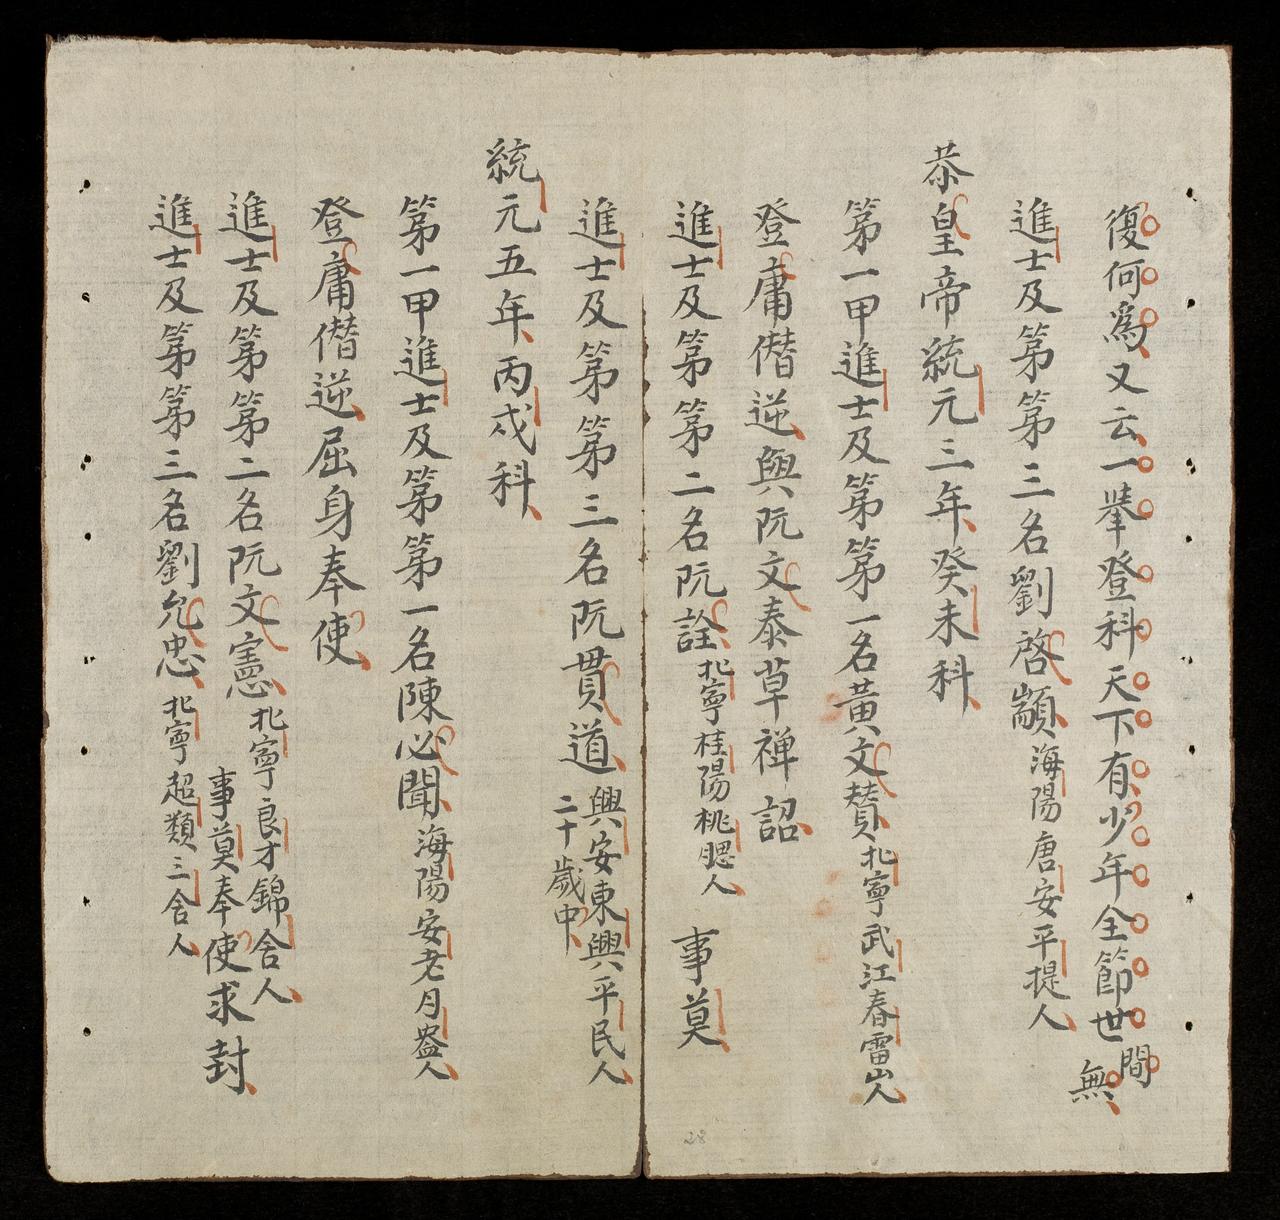 復何爲又云一举登科天下有少年全節世間無
進士及第第三名劉啓顓海陽唐安平提人
恭皇帝統元三年癸未科
第一甲進士及第第一名黃文賛北寧武江春雷山人
登庸僣逆與阮文泰草禅詔
進士及第第二名阮詮北寧桂陽桃腮人
事莫
進士及第第三名阮貫道興安東興平民人
二十歲中
統元五年丙戌科
第一甲進士及第第一名陳必聞海陽安老月盎人
登庸僣逆屈身奉使
進士及第第二名阮文憲北寧良才錦舍人
事莫奉使求封
進士及第第三名劉允忠北寧超類三舍人
28